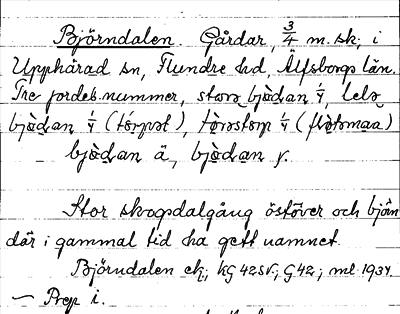 Björndalen Gårdar, 3/4 m. sk, i
Upphärad sn, Flundre hd, Älfsborgs län.
Tre jordeb. nummer, stora bjödan 1/4, lela
bjödan 1/4 (tórpət), tòrəstorp 1/4 (flötəmaa)
bjödan ä, bjödan y.
Stor skogsdalgång östöver och björn
där i gammal tid ha gett namnet.
Björndalen ek; KG 42 SV; G42; ml 1934.
— Prep i.